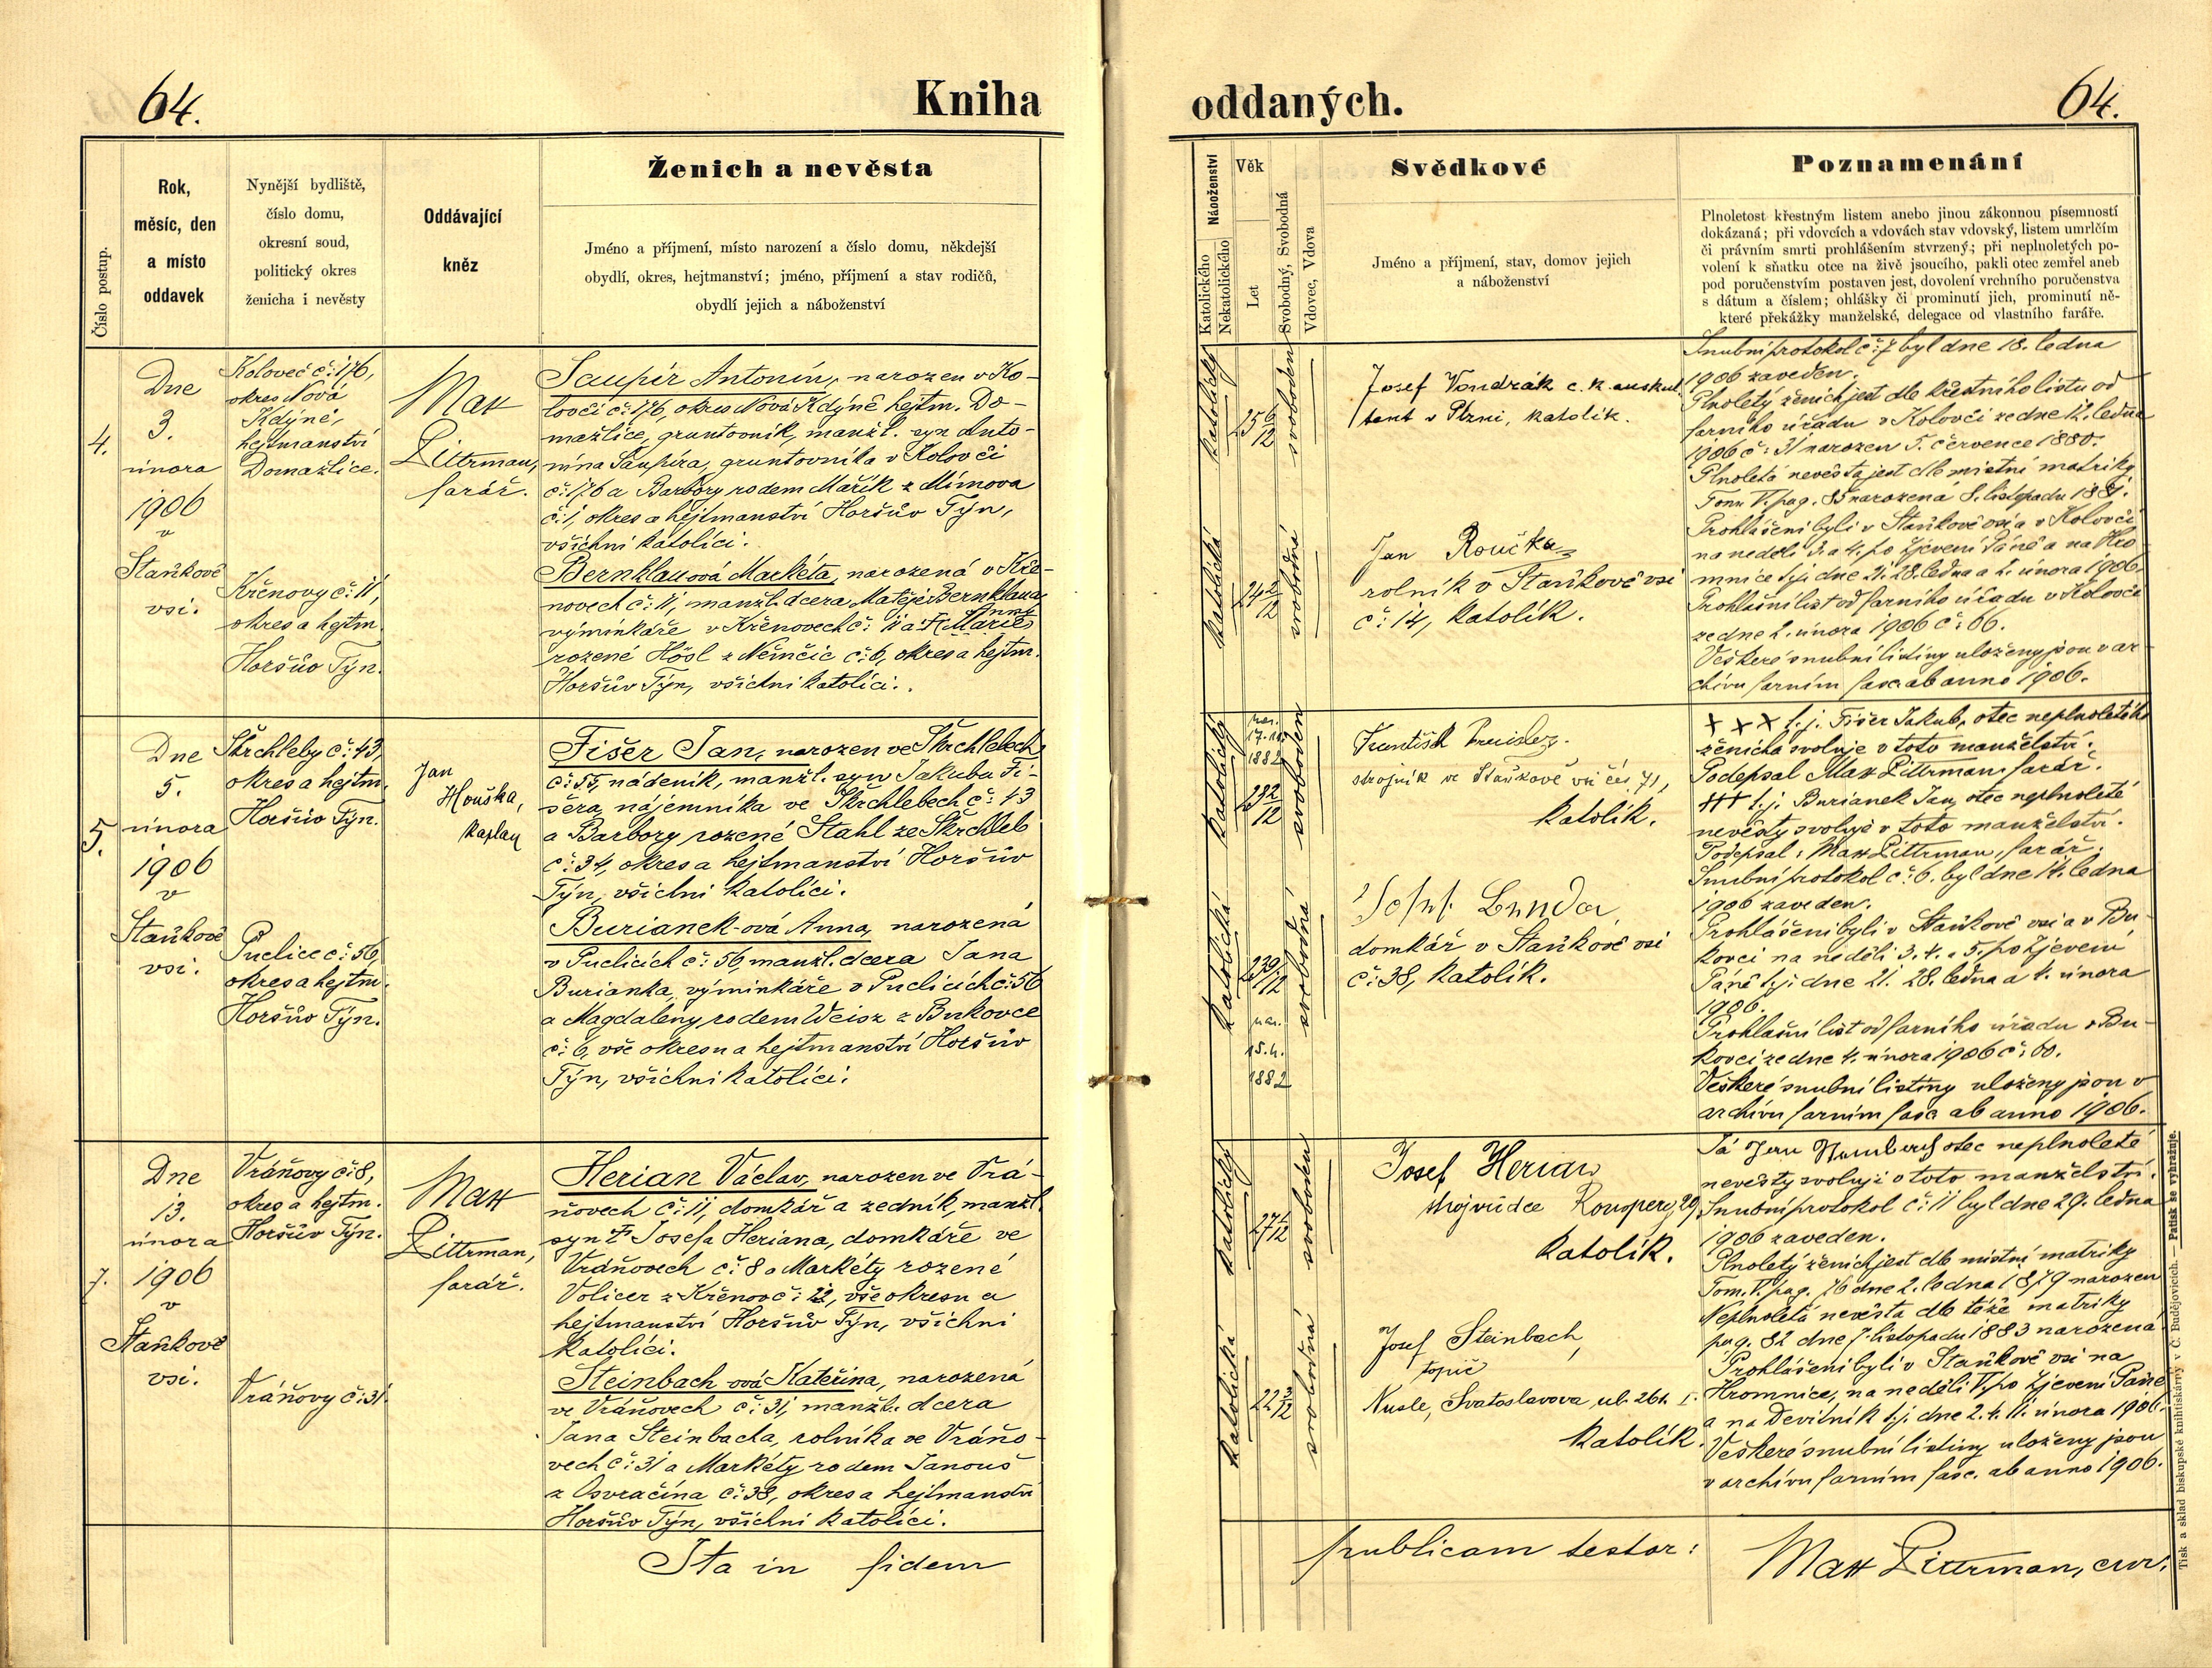 64.
Kniha
oddaných.
64.
Číslo postup.
Rok,
měsíc, den
a místo
oddavek
Nynější bydliště,
číslo domu,
okresní soud,
politický okres
ženicha i nevěsty
Oddávající
kněz
Ženich a nevěsta
Jméno a příjmení, místo narození a číslo domu, někdejší
obydlí, okres, hejtmanství; jméno, příjmení a stav rodičů,
obydlí jejich a náboženství
Náboženství
Katolického
Nekatolického
Věk
Let
Svobodný, Svobodná
Vdovec, Vdova
Svědkové
Jméno a příjmení, stav, domov jejich
a náboženství
Poznamenání
Plnoletost křestným listem anebo jinou zákonnou písemností
dokázaná; při vdovcích a vdovách stav vdovský, listem umrlčím
či právním smrti prohlášením stvrzený; při neplnoletých po-
volení k sňatku otce na živě jsoucího, pakli otec zemřel aneb
pod poručenstvím postaven jest, dovolení vrchního poručenstva
s dátum a číslem; ohlášky či prominutí jich, prominutí ně-
které překážky manželské, delegace od vlastního faráře.
4.
Dne
3.
února
1906
v
Staňkově
vsi.
Koloveč č: 176,
okres Nová
Kdýně,
hejtmanství
Domažlice.
Křenovy č: 11,
okres a hejtm.
Horšův Týn.
Max
Littrman,
farář.
Saupír Antonín, narozen v Ko-
lovči č: 176, okres Nová Kdýně hejtm. Do-
mažlice, gruntovník, manžl. syn Anto-
nína Saupíra, gruntovníka v Kolovči
č: 176 a Barbory rodem Mařík z Mímova
č: 1, okres a hejtmanství Horšův Týn,
všichni katolíci.
Bernklauová Markéta, narozená v Kře-
novech č: 11, manžl. dcera Matěje Bernklaua
Anny
výminkáře v Křenovech č: 11 a † Marie
rozené Hösl z Němčic č: 6, okres a hejtm.
Horšův Týn, všichni katolíci.
katolický
25 6/12
svoboden
Josef Vondrák c. k. auskul
tant v Plzni, katolík.
katolická
24 2/12
svobodná
Jan Roučka
rolník v Staňkově vsi
č: 14, katolík.
Snubní protokol č: 7 byl dne 18. ledna
1906 zaveden.
Plnoletý ženich jest dle křestního listu od
farního úřadu v Kolovči ze dne 12. ledna
1906 č: 31 narozen 5. července 1880.
Plnoletá nevěsta jest dle místní matriky
Tom. V. pag. 85 narozená 8. listopadu 1881.
Prohlášeni byli v Staňkově vsi a v Kolovči
na neděli 3. a 4. po Zjevení Páně a na Hro
mnice t. j. dne 21. 28. ledna a 2. února 1906.
Prohlašní list od farního úřadu v Kolovči
ze dne 2. února 1906 č: 66.
Veškeré snubní listiny uloženy jsou v ar
chivu farním fasc. ab anno 1906.
5.
Dne
5.
února
1906
v
Staňkově
vsi.
Škrchleby č: 43,
okres a hejtm.
Horšův Týn.
Puclice č: 56,
okres a hejtm.
Horšův Týn.
Jan
Houška,
kaplan
Fišer Jan, narozen ve Škrchlebech
č: 55, nádeník, manžl. syn Jakuba Fi-
šera, nájemníka ve Škrchlebech č: 43
a Barbory rozené Stahl ze Škrchleb
č: 34, okres a hejtmanství Horšův
Týn, všichni katolíci.
Burianek-ová Anna, narozená
v Puclicích č: 56, manžl. dcera Jana
Burianka, výminkáře v Puclicích č: 56
a Magdaleny rodem Weisz z Bukovce
č: 6, vše okresu a hejtmanství Horšův
Týn, všichni katolíci.
katolický
nar.
1882
23 2/12
svoboden
František
strojník ve Staňkově vsi čís 71,
katolík.
katolická
svobodná
nar.
15. 4.
1882
Josef Benda,
domkář v Staňkově vsi
č: 38, katolík.
+ + + t. j. Fišer Jakub, otec neplnoletého
ženicha svoluje v toto manželství.
Podepsal Max Littrman farář.
+++ t. j. Burianek Jan, otec neplnoleté
nevěsty svoluje v toto manželství.
Podepsal: Max Littrman, farář.
Snubní protokol č: 6. byl dne 14. ledna
1906 zaveden.
Prohlášeni byli v Staňkově vsi a v Bu-
kovci na neděli 3. 4. a 5. po Zjevení
Páně t. j. dne 21. 28. ledna a 4. února
1906.
Prohlašní list od farního úřadu v Bu-
kovci ze dne 4. února 1906 č: 60.
Veškeré snubní listiny uloženy jsou v
archivu farním fasc. ab anno 1906.
7.
Dne
13.
února
1906
v
Staňkově
vsi.
Vráňovy č: 8,
okres a hejtm.
Horšův Týn.
Vráňovy č: 31.
Max
Littrman,
farář.
Herian Václav, narozen ve Vrá-
ňovech č: 11, domkář a zedník, manžl.
syn † Josefa Heriana, domkáře ve
Vráňovech č: 8 a Markéty rozené
Volicer z Křenov č: 12, vše okresu a
hejtmanství Horšův Týn, všichni
katolíci.
Steinbach-ová Kateřina, narozená
ve Vráňovech č: 31, manžl. dcera
Jana Steinbacha, rolníka ve Vráňo-
vech č: 31 a Markéty rodem Janouš
z Osvračína č: 38, okres a hejtmanství
Horšův Týn, všichni katolíci.
katolický
27 1/12
svoboden
Josef Herian
strojvůdce 29,
katolík.
katolická
22 3/12
svobodná
Josef Steinbach,
topič
Nusle, Svatoslavova ul. 261.
katolík.
Já Jan Steinbach otec neplnoleté
nevěsty svoluji v toto manželství.
Snubní protokol č: 11 byl dne 29. ledna
1906 zaveden.
Plnoletý ženich jest dle místní matriky
Tom. V. pag. 76 dne 2. ledna 1879 narozen
Neplnoletá nevěsta dle téže matriky
pag. 82 dne 7. listopadu 1883 narozená.
Prohlášeni byli v Staňkově vsi na
Hromnice, na neděli V. po Zjevení Páně
a na Devítník t. j. dne 2. 4. 11. února 1906.
Veškeré snubní listiny uloženy jsou
v archivu farním fasc. ab anno 1906.
Ita in fidem
publicam testor:
Max Littrman, cur.
Tisk a sklad biskupské knihtiskárny v Č. Budějovicích. — Patisk se vyhražuje.